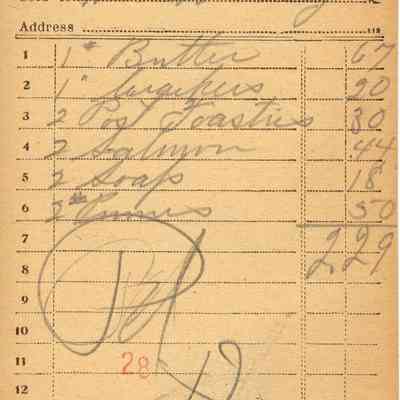 Address
1 1# Butter 67
2 1" 20
3 2 Post Toasties 30
4 2 Salmon 44
5 2 Soap 18
6 2 50
7 2 29
8
9
10
11 28
12